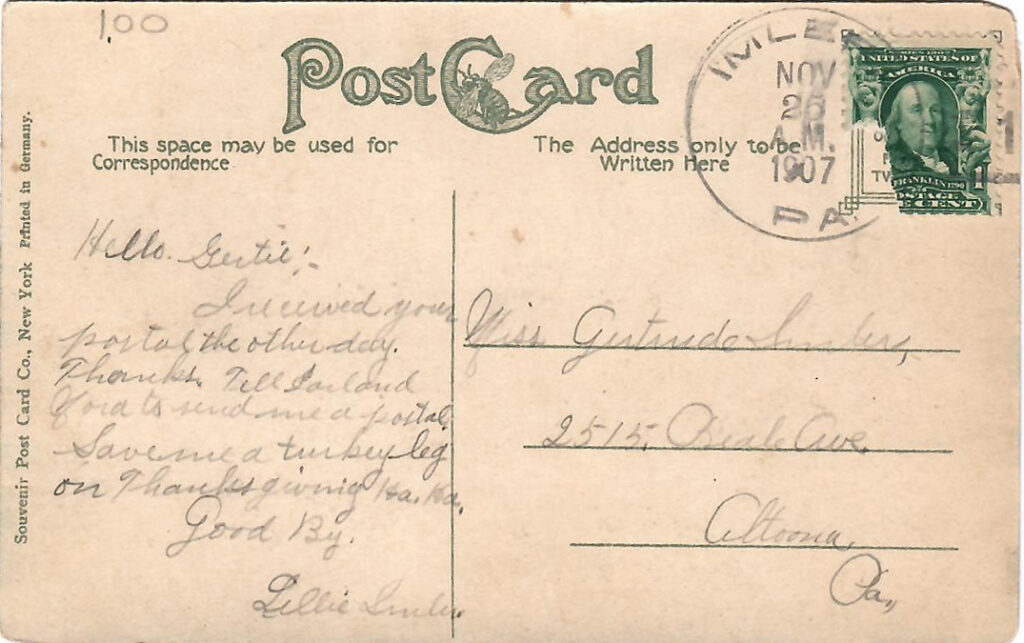 1.00
Post Card
This space may be used for
Correspondence
The Address only to be
Written Here
IMLER
NOV
26
A.M.
1907
PA.
UNITED STATES OF
AMERICA
FRANKLIN 1790
POSTAGE
E CENT
1
Souvenir Post Card Co., New York Printed in Germany.
Hello. Gertie!-
I received your
postal the other day.
Thanks. Tell
to send me a postal.
Save me a turkey leg
on Thanksgiving Ha. Ha.
Good By.
Lillie Imler.
Miss Gertrude Imler,
2515, Beale Ave.
Altoona,
Pa.,